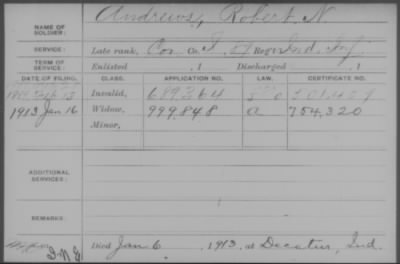 NAME OF SOLDIER: Andrews, Robert N.
SERVICE: Late rank, Cor. Co. I, Reg't Ind. Inf.
TERM OF SERVICE: Enlisted , 1 Discharged , 1
DATE OF FILING. CLASS. APPLICATION NO. LAW. CERTIFICATE NO.
Invalid, 689,264
1913 Jan 16 Widow, 999,848 a 754,320
Minor,
ADDITIONAL SERVICES:
REMARKS:
Died Jan 6, 1913, at Decatur, Ind.